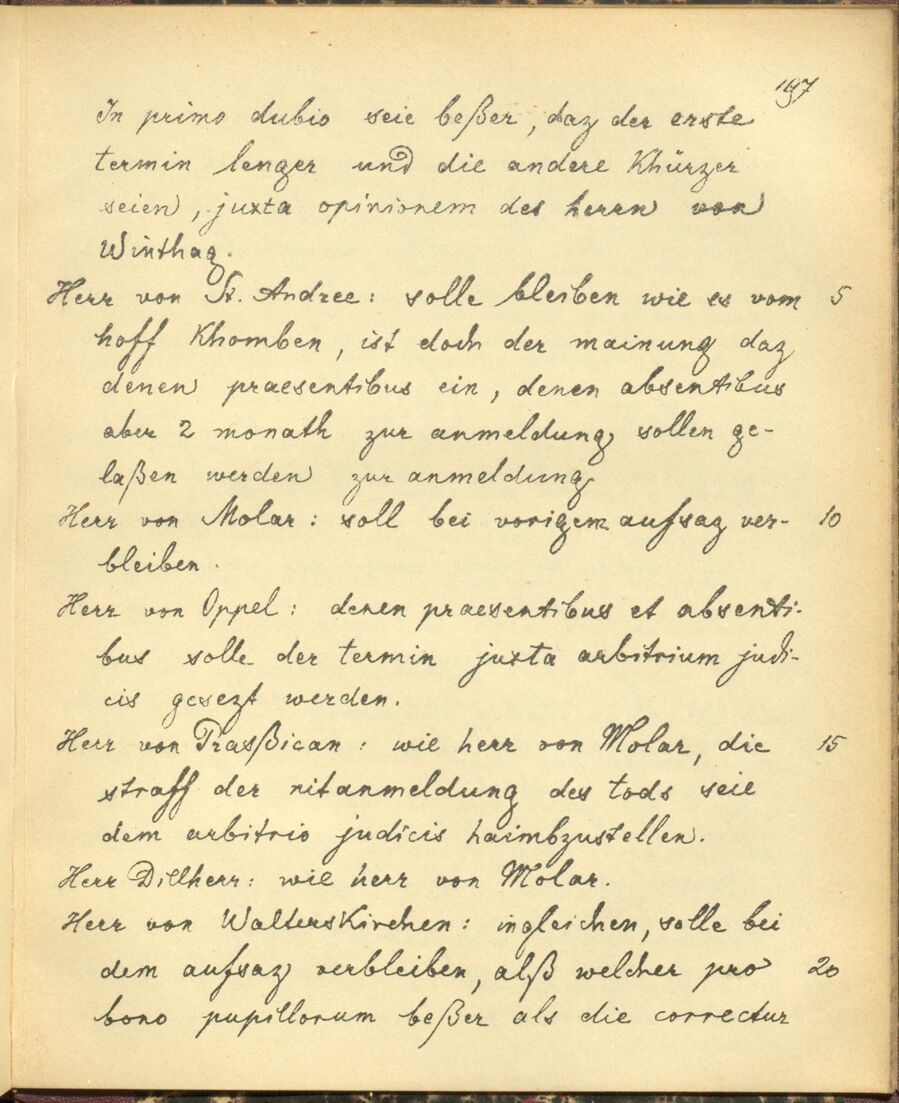 197
In primo dubio seie beßer, daz der erste
termin lenger und die andere Khürzer
seien, juxta opinionem des herrn von
Winthag.
Herr von St. Andree: solle bleiben wie es vom 5
hoff Khomben, ist doch der mainung daz
denen praesentibus ein, denen absentibus
aber 2 monath zur anmeldung sollen ge-
laßen werden zur anmeldung
Herr von Molar: soll bei vorigem aufsaz ver- 10
bleiben.
Herr von Oppel: denen praesentibus et absenti-
bus solle der termin juxta arbitrium judi-
cis gesezt werden.
Herr von Trasßican: wie herr von Molar, die 15
straff der nitanmeldung des tods seie
dem arbitrio judicis haimbzustellen.
Herr Dillherr: wie herr von Molar.
Herr von Walterskirchen: ingleichen, solle bei
dem aufsaz verbleiben, alß welcher pro 20
bono pupillorum beßer als die correctur